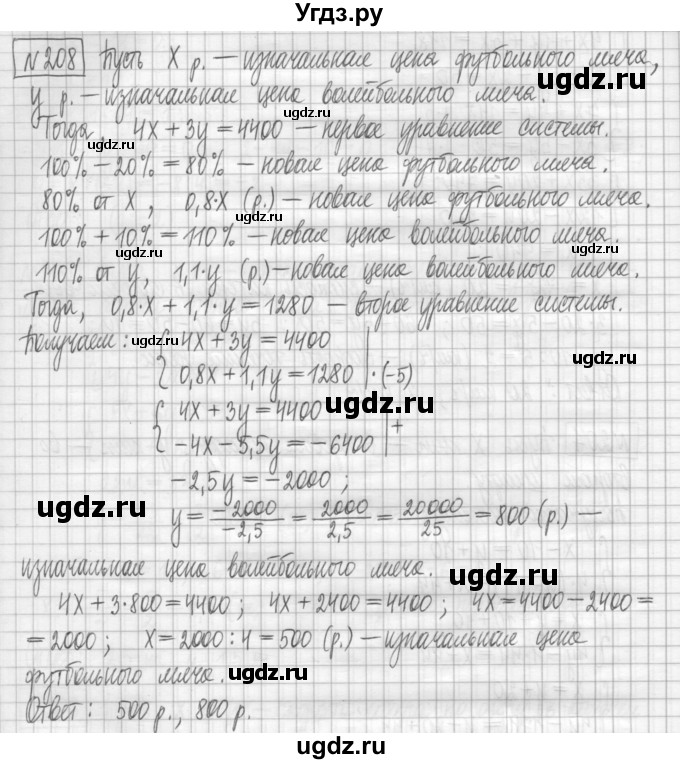 Угдз.ру
№208 Пусть X р. — изначальная цена футбольного мяча,
ugdz.ru
y р. — изначальная цена волейбольного мяча.
ugdz.ru
Тогда, 4X + 3y = 4400 — первое уравнение системы.
ugdz.ru
100% − 20% = 80% — новая цена футбольного мяча.
ugdz.ru
80% от X, 0,8·X (р.) — новая цена футбольного мяча.
ugdz.ru
100% + 10% = 110% — новая цена волейбольного мяча.
ugdz.ru
110% от y, 1,1·y (р.) — новая цена волейбольного мяча.
Тогда, 0,8·X + 1,1·y = 1280 — второе уравнение системы.
Получаем: ugdz.ru { 4X + 3y = 4400
ugdz.ru
0,8X + 1,1y = 1280 | ·(−5)
{ 4X + 3y = 4400 ugdz.ru
−4X − 5,5y = −6400 | +
−2,5y = −2000 ;
ugdz.ru
y = −2000/−2,5 = 2000/2,5 = 20000/25 = 800 (р.) —
изначальная цена волейбольного мяча.
ugdz.ru
4X + 3·800 = 4400 ; 4X + 2400 = 4400 ; 4X = 4400 − 2400 =
= 2000 ; X = 2000 : 4 = 500 (р.) — изначальная цена
футбольного мяча.
ugdz.ru
Ответ: 500 р., 800 р.
ugdz.ru
ugdz.ru